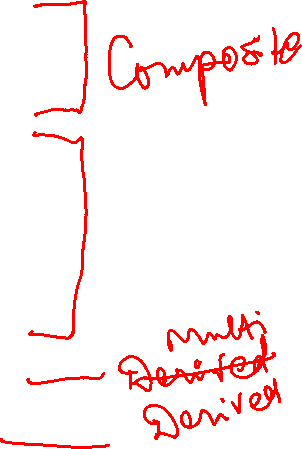 Composite
Multi
Derived
Derived